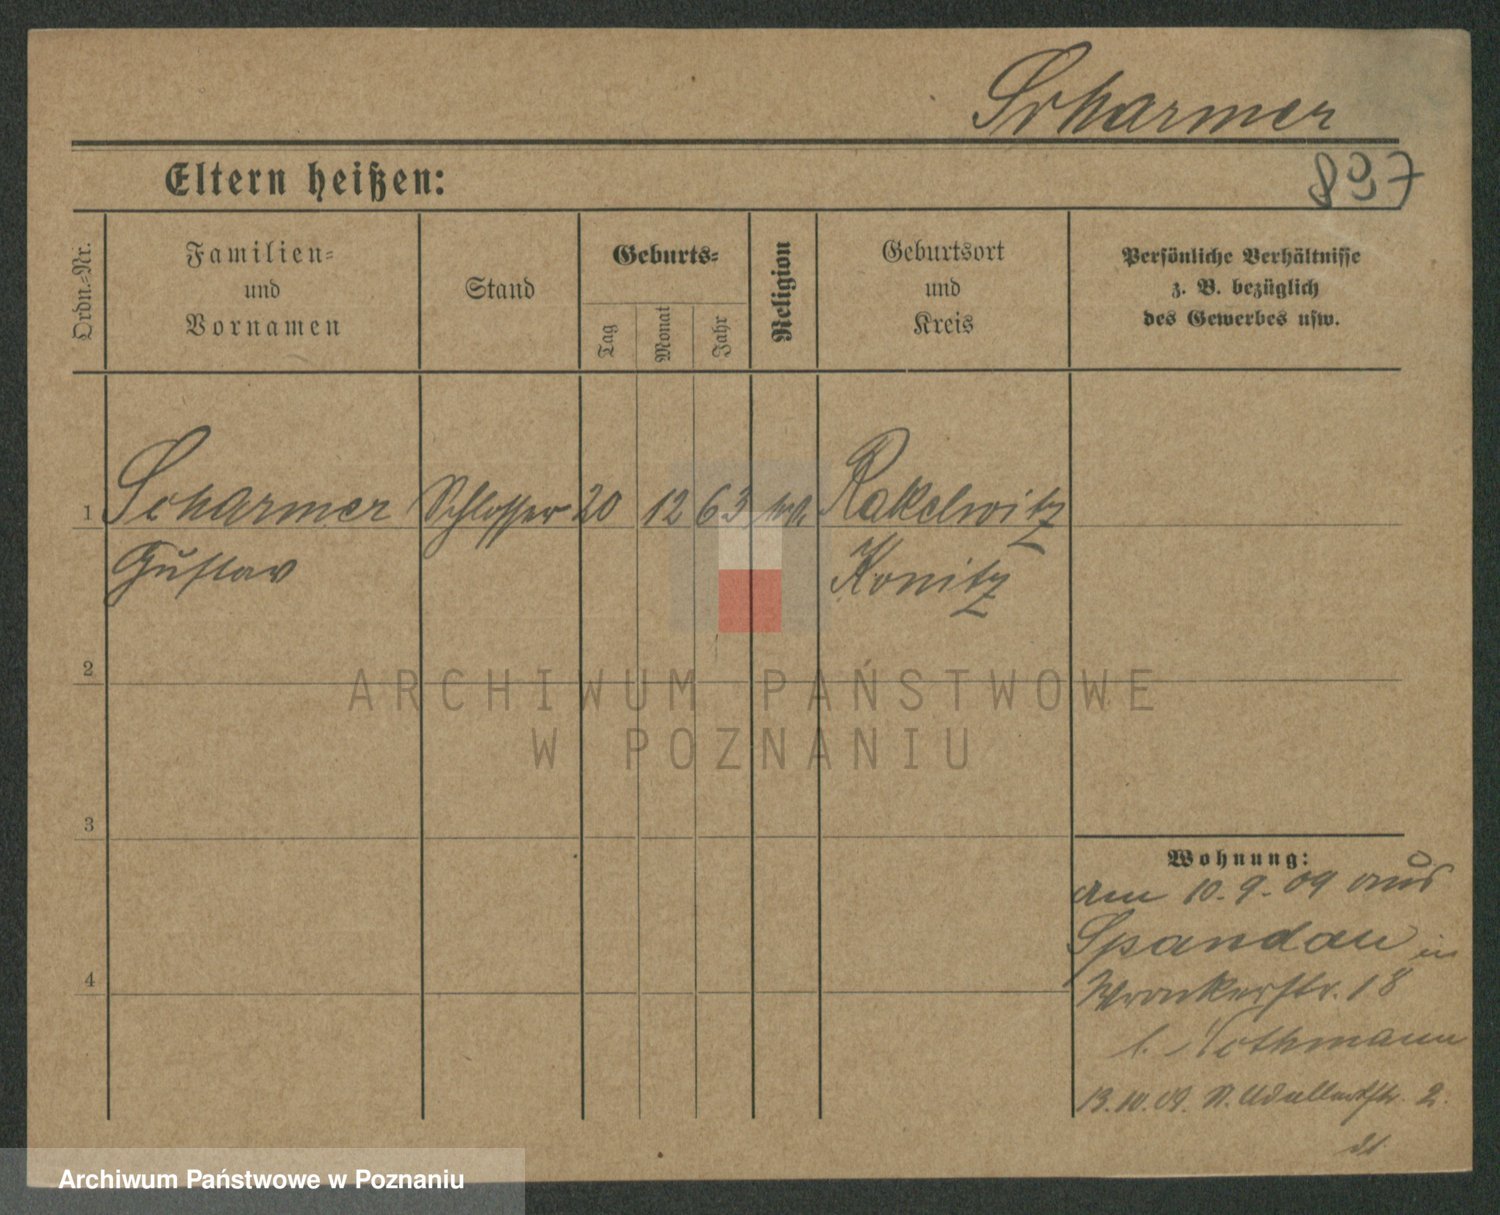 Scharmer
Eltern heißen:
897
Ordn.-Nr.
Familien-
und
Vornamen
Stand
Geburts-
Tag
Monat
Jahr
Religion
Geburtsort
und
Kreis
Persönliche Verhältnisse
z. B. bezüglich
des Gewerbes usw.
1 Scharmer Schlosser 20 12 63 Rakelwitz
Gustav Konitz
2
ARCHIWUM PAŃSTWOWE
W POZNANIU
3
Wohnung:
am 10.9.09 aus
Spandau in
4
Wronkerstr. 18
b. Nothmann
13.10.09. St. Adalbertstr. 2.
Archiwum Państwowe w Poznaniu